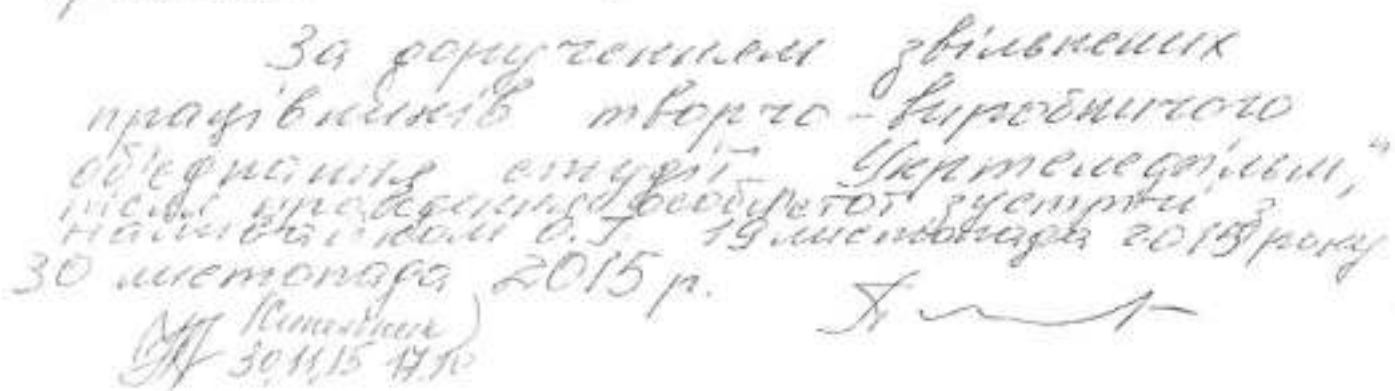 За дорученням звільнених
працівників творчо-виробничого
об'єднання студії "Укртелефільм,"
після проведення особистої зустрічі з
19 листопада 2015 року
30 листопада 2015 р.
30.11.15 17.10